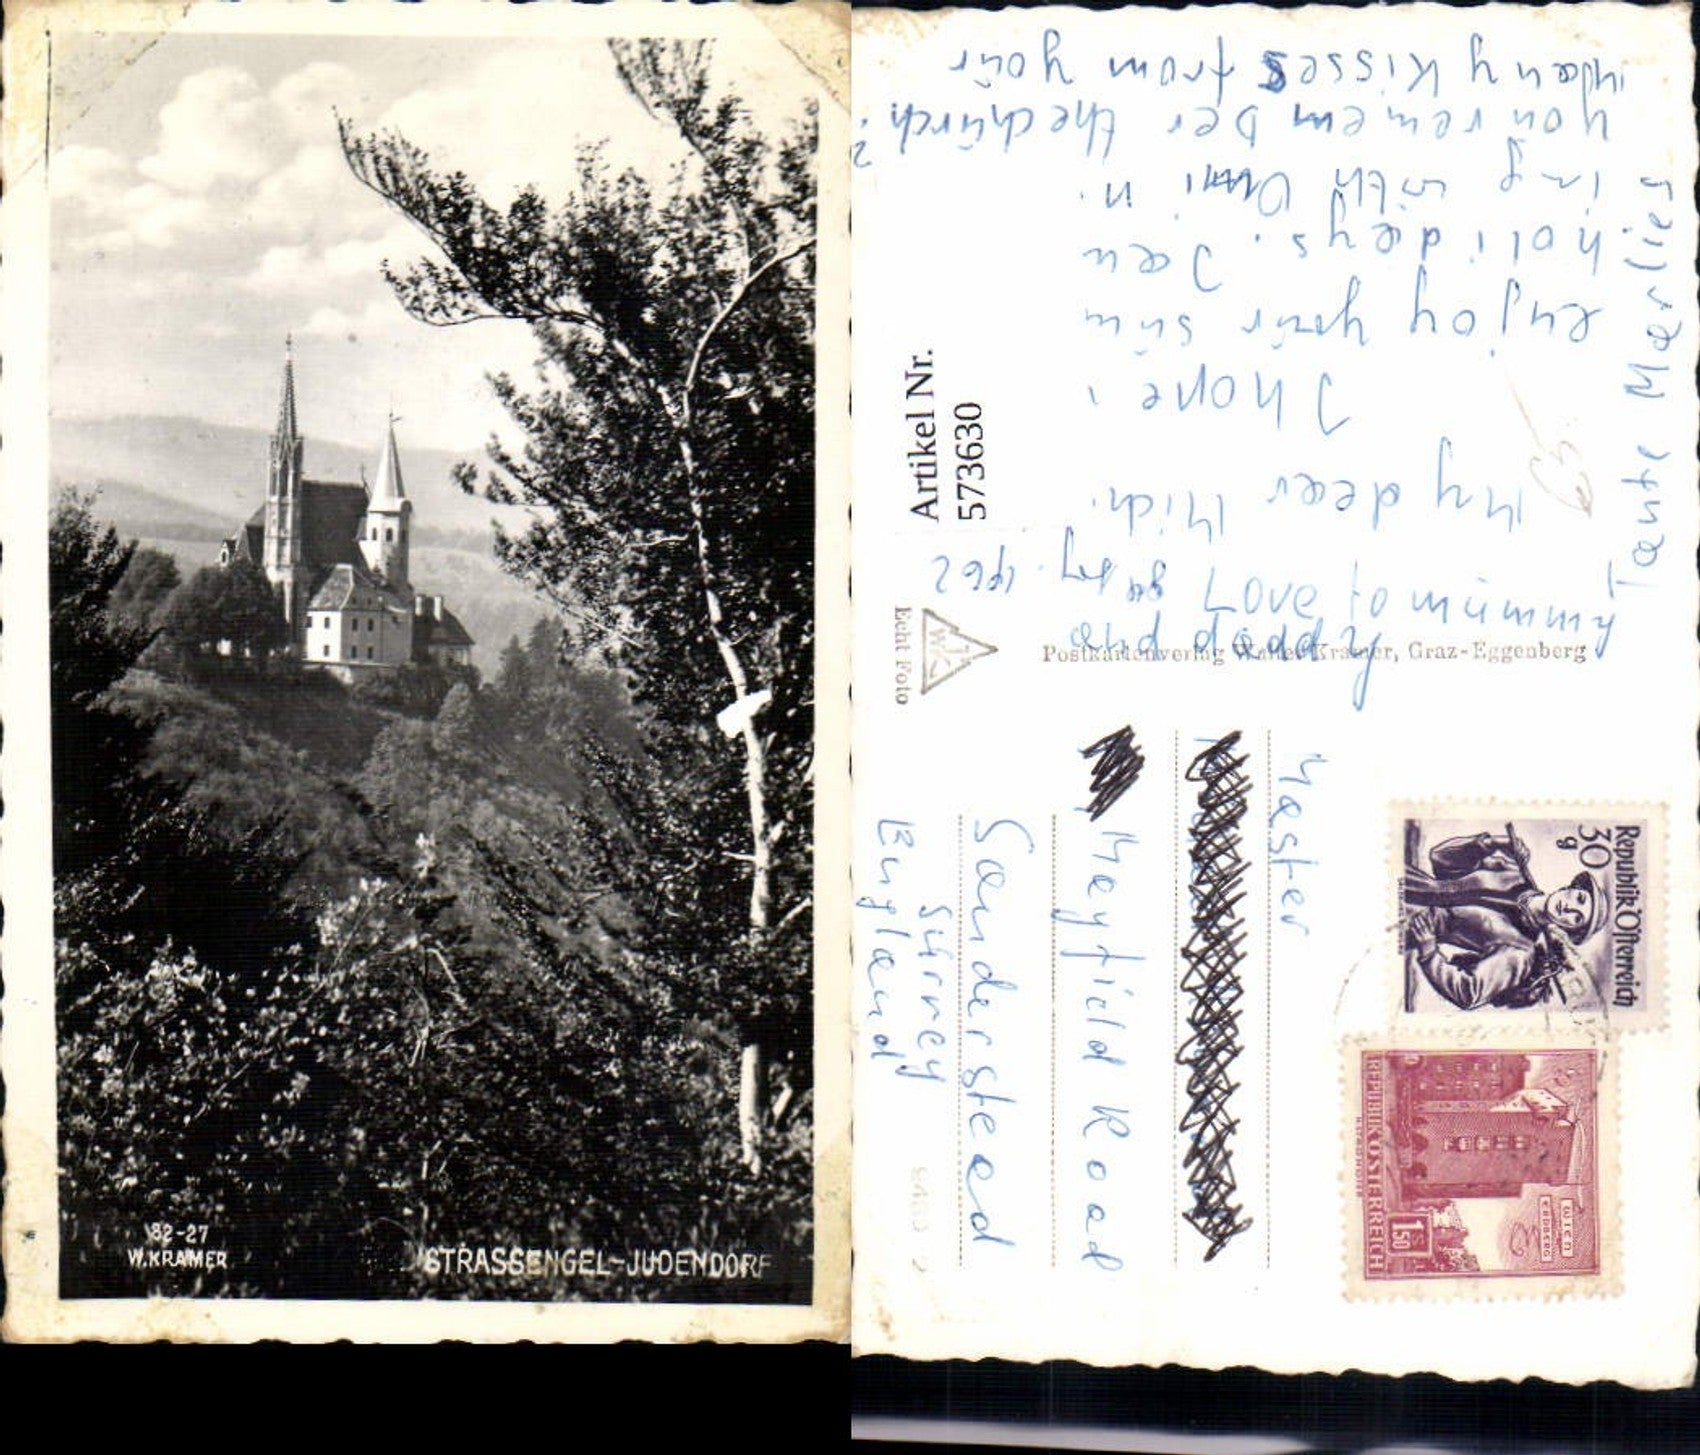 82-27
W. KRAMER
STRASSENGEL-JUDENDORF
Artikel Nr.
573630
Echt Foto
Postkartenverlag Walter Kramer, Graz-Eggenberg
My dear Mich.
I hope,
enjoy your sun
holidays. I au
ing with Omi n.
you remember the church?
Many Kisses from your
Tante Marlies
1962
Love
Master
Mayfield Road
Sanderstead
Surrey
England
Republik Österreich
30
g
REPUBLIK ÖSTERREICH
1.50
WIEN
ERDBERG